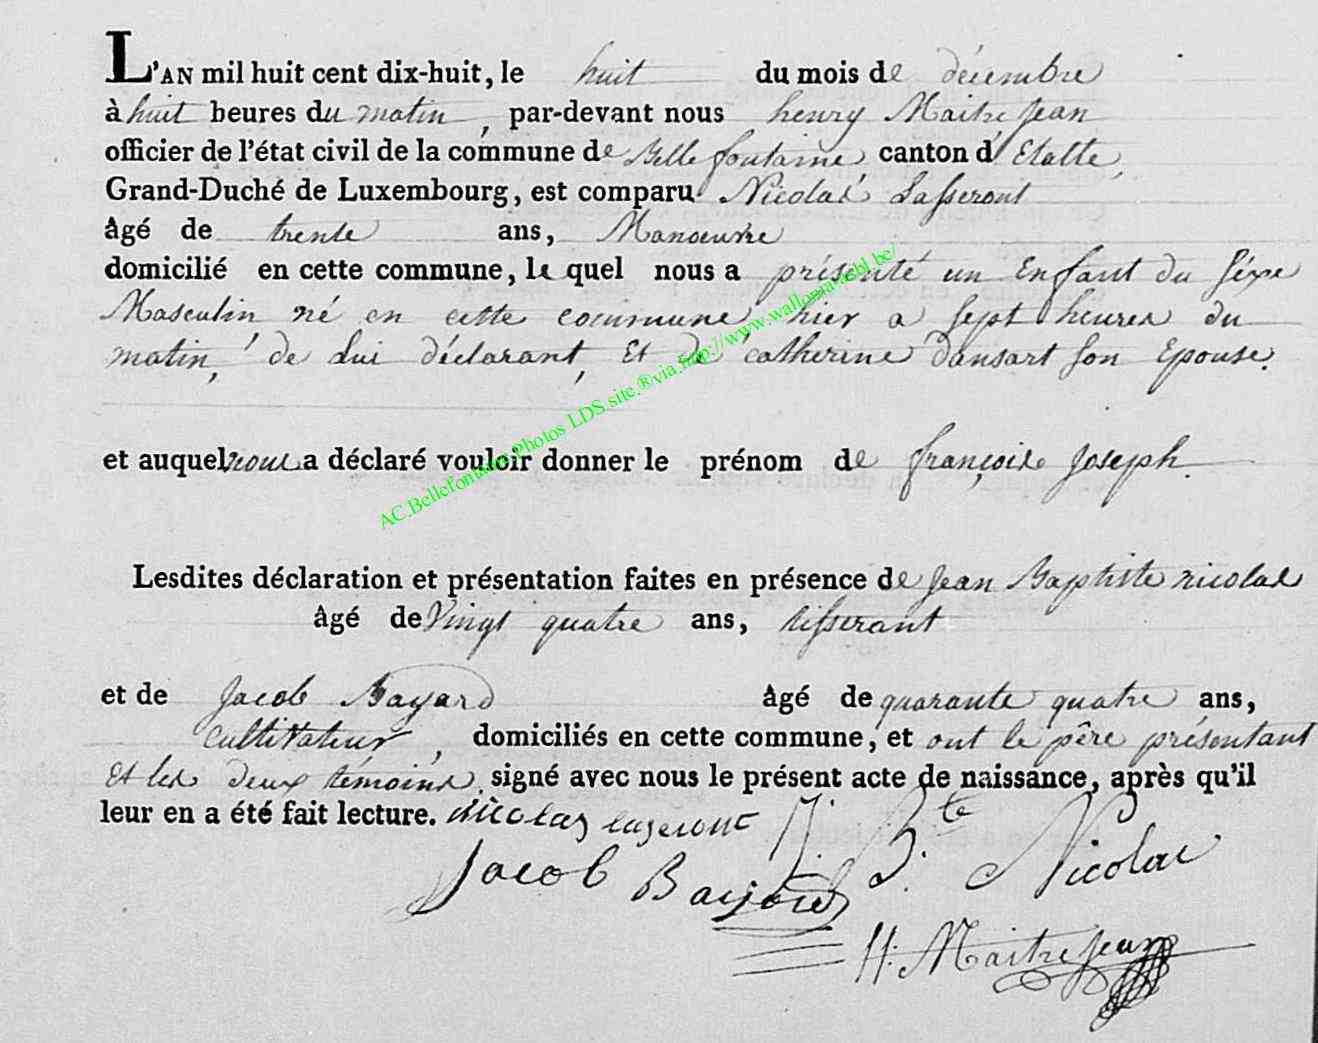 L'AN mil huit cent dix-huit, le huit du mois de décembre
à huit heures du matin, par-devant nous henry Maitrejean
officier de l'état civil de la commune de Belle fontaine, canton d'Etalle,
Grand-Duché de Luxembourg, est comparu Nicolas Lasseront
âgé de trente ans, Manoeuvre
domicilié en cette commune, le quel nous a présenté un Enfant du séxe
Masculin né en cette commune, hier a sept heures du
matin, de Lui déclarant, Et de catherine dansart son Epouse.
et auquel nous a déclaré vouloir donner le prénom de françois Joseph.
Lesdites déclaration et présentation faites en présence de Jean Baptiste nicolas
âgé de Vingt quatre ans, tisserant
et de Jacob Bayard âgé de quarante quatre ans,
cultivateur, domiciliés en cette commune, et ont le père présentant
Et les deux témoins signé avec nous le présent acte de naissance, après qu'il
leur en a été fait lecture. nicolas laseront J. B.te Nicolas
Jacob Bayard
H. Maitrejean
AC.Bellefontaine Photos LDS.site.®via.http://www.wallonia-asbl.be/